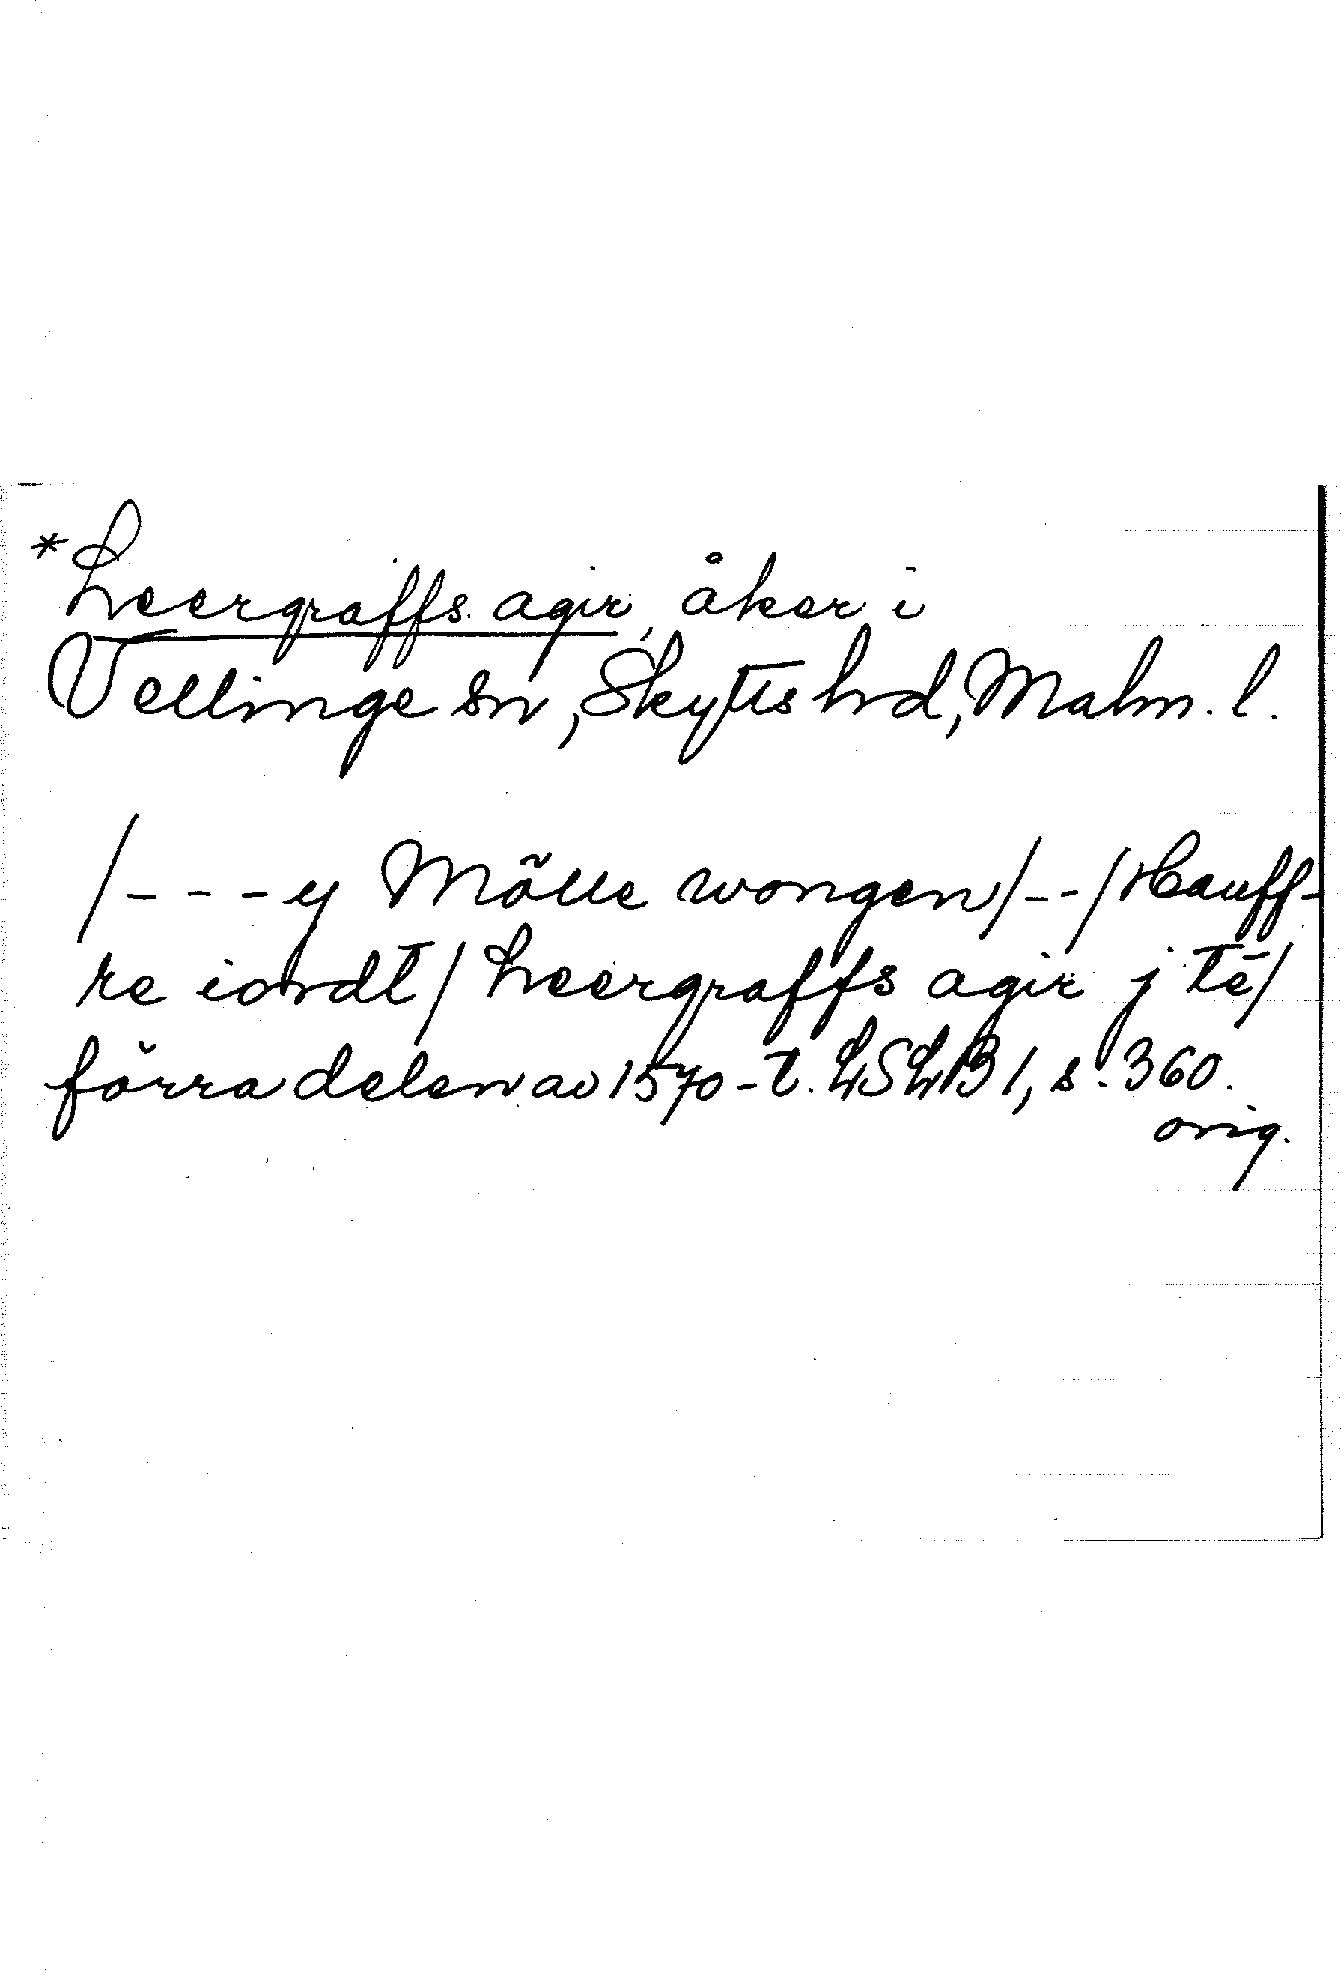 *Leergraffs agir, åker i
Vellinge sn, Skytts hd, Malm. l.
/---y Mölle wongen/--/Hauff-
re iordt/ Leergraffs agir j tē/
förra delen av 1570-t. LSLB 1, s. 360.
orig.